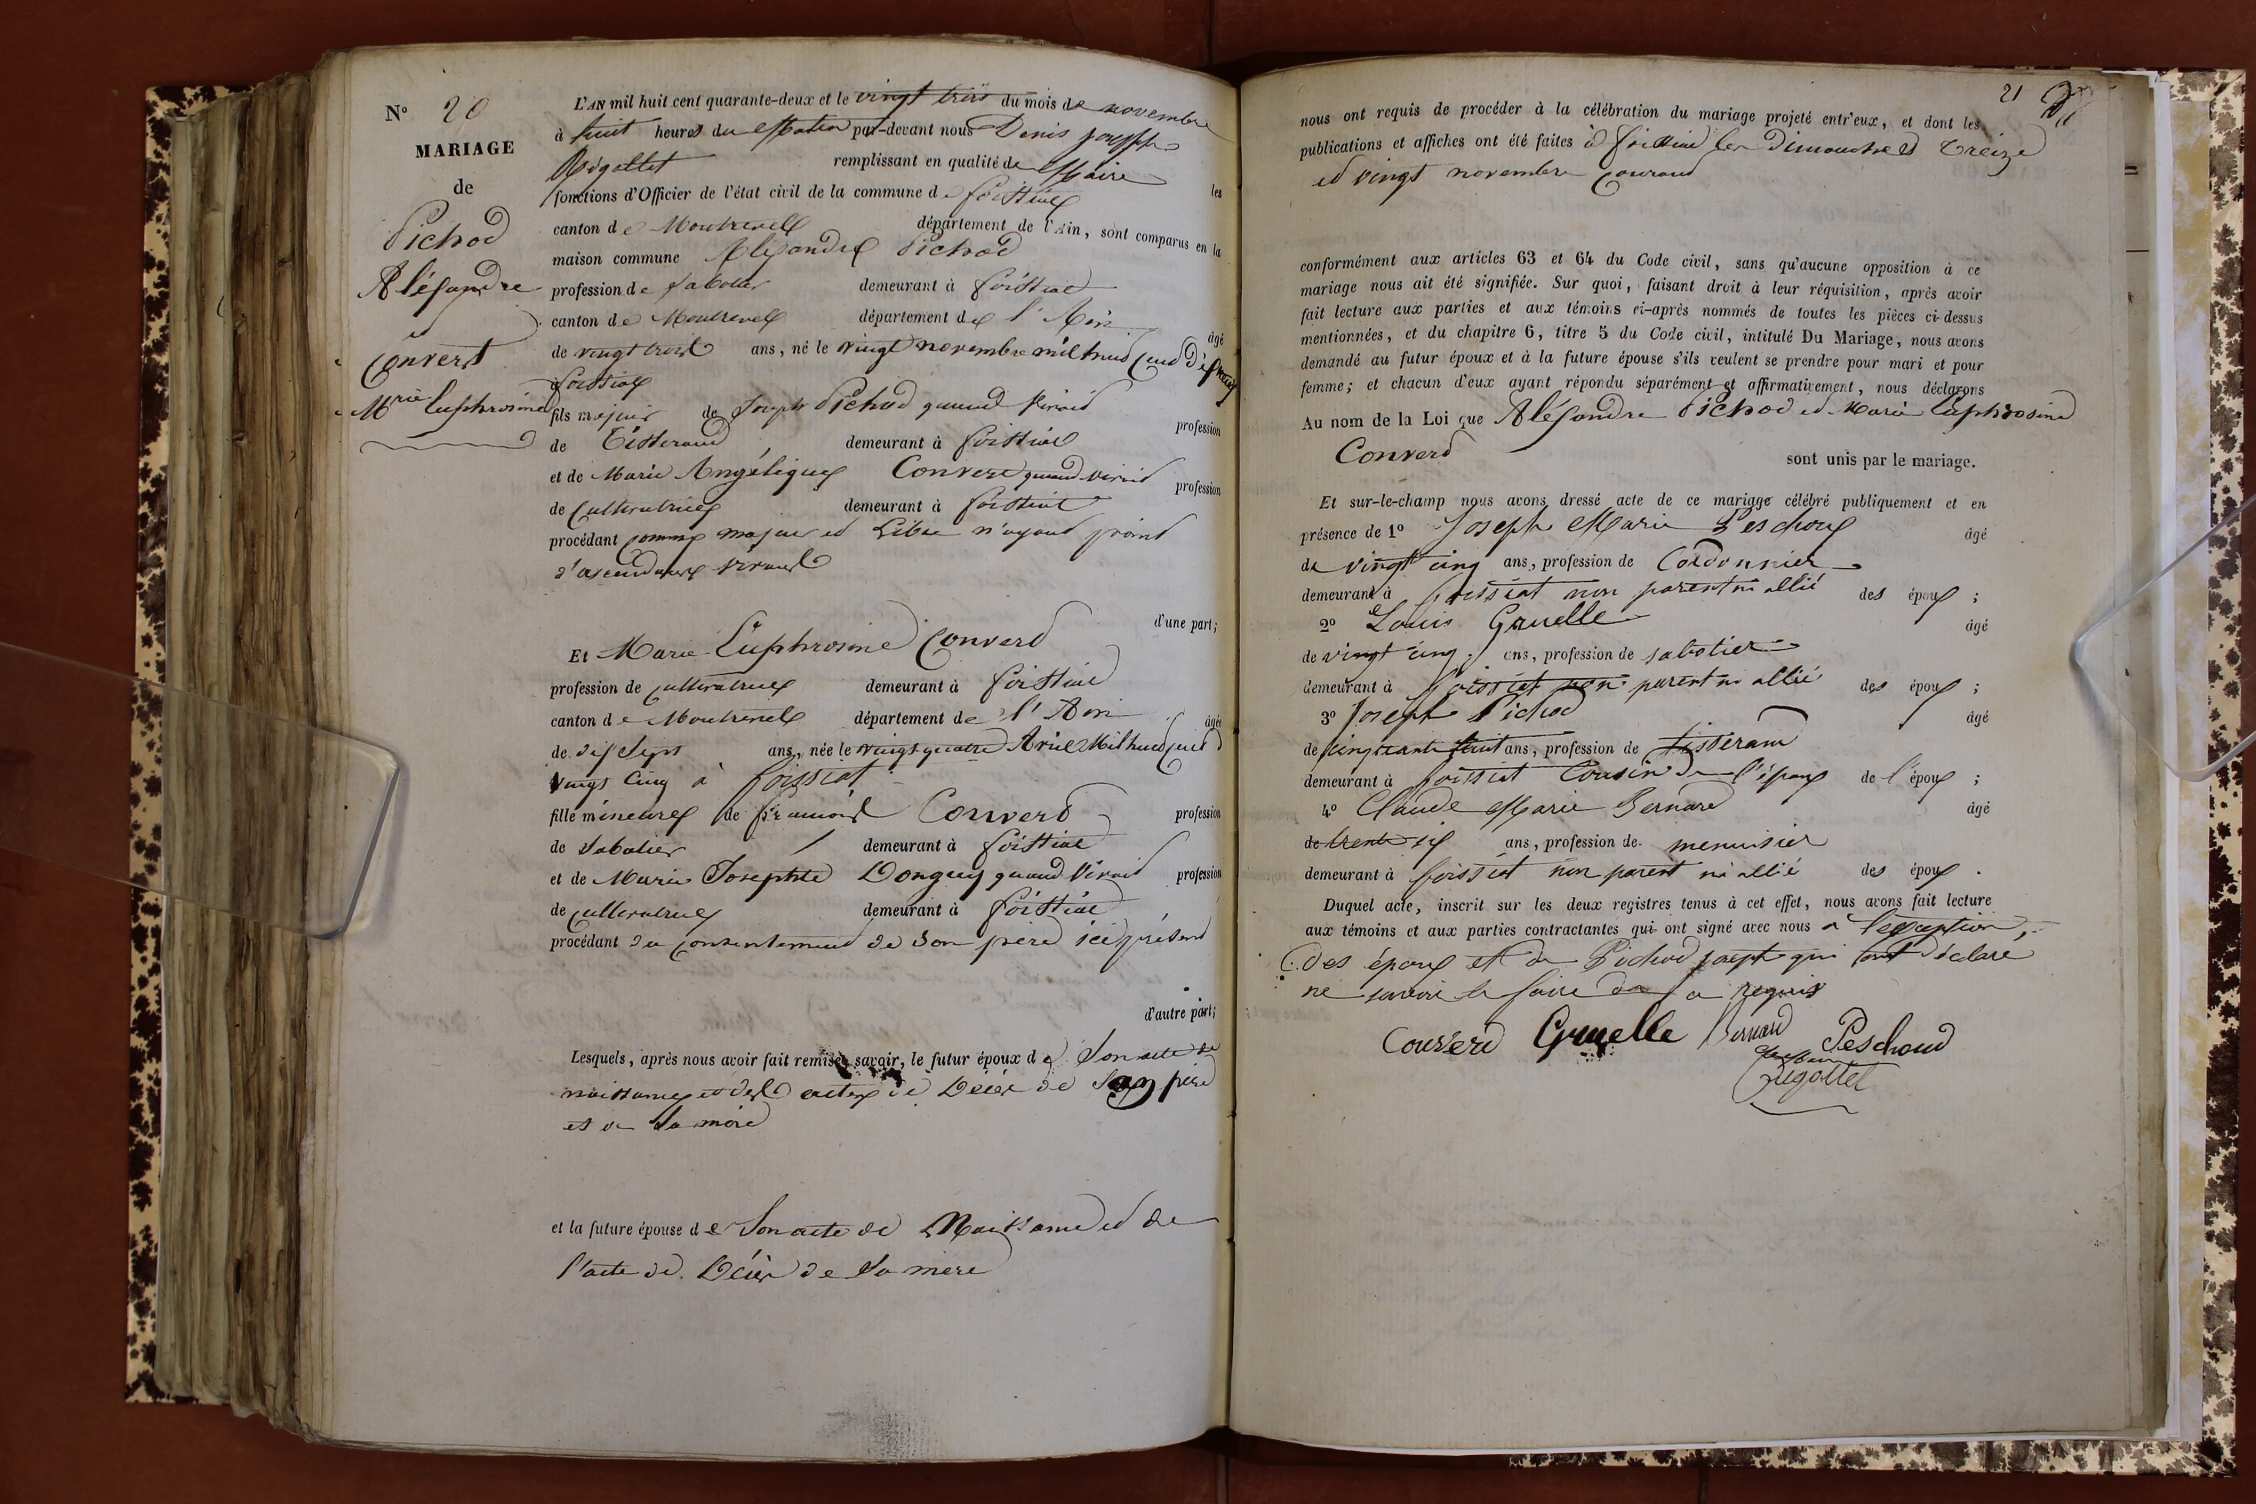 N° 20
MARIAGE
de
Pichod
Aléxandre
et
Convert
Mrie Euphrosine
L'AN mil huit cent quarante-deux et le vingt trois du mois de novembre
à huit heures du Matin par-devant nous Denis joseph
Rigottet remplissant en qualité de Maire les
fonctions d'Officier de l'état civil de la commune de foissiat
canton de Montrevel département de l'Ain, sont comparus en la
maison commune Alexandre Pichod
profession de sabotier demeurant à foissiat
canton de Montrevel département de l'Ain âgé
de vingt trois ans, né le vingt novembre mil huit cent dix
foissiat
fils majeur de Joseph Pichod quand vivait profession
de Tisserand demeurant à foissiat
et de Marie Angélique Convert quand vivait profession
de Cultivatrice demeurant à foissiat
procédant comme majeur et Libre n'ayant point
d'ascendants vivants
d'une part;
Et Marie Euphrosine Convert
profession de cultivatrice demeurant à foissiat
canton de Montrevel département de l'Ain âgée
de dix sept ans, née le vingt quatre Avril Mil huit cent
vingt cinq à foissiat
fille mineure de françois Convert profession
de Sabotier demeurant à foissiat
et de Marie Josephte Donguy quand vivait profession
de cultivatrice demeurant à foissiat
procédant du consentement de son père ici présent
d'autre part;
Lesquels, après nous avoir fait remise, savoir, le futur époux de Son acte de
naissance et des actes de Décès de son père
et de sa mère
et la future épouse de Son acte de Naissance et de
l'acte de Décès de sa mère
21
nous ont requis de procéder à la célébration du mariage projeté entr'eux, et dont les
publications et affiches ont été faites à foissiat les Dimanches treize
et vingt novembre courant
conformément aux articles 63 et 64 du Code civil, sans qu'aucune opposition à ce
mariage nous ait été signifiée. Sur quoi, faisant droit à leur réquisition, après avoir
fait lecture aux parties et aux témoins ci-après nommés de toutes les pièces ci-dessus
mentionnées, et du chapitre 6, titre 5 du Code civil, intitulé Du Mariage, nous avons
demandé au futur époux et à la future épouse s'ils veulent se prendre pour mari et pour
femme; et chacun d'eux ayant répondu séparément et affirmativement, nous déclarons
Au nom de la Loi que Aléxandre Pichod et Marie Euphrosine
Convert sont unis par le mariage.
Et sur-le-champ nous avons dressé acte de ce mariage célébré publiquement et en
présence de 1° Joseph Marie Peschoux âgé
de vingt cinq ans, profession de Cordonnier
demeurant à foissiat non parent ni allié des époux ;
2° Louis Gruelle âgé
de vingt cinq ans, profession de sabotier
demeurant à foissiat non parent ni allié des époux ;
3° Joseph Pichod âgé
de cinquante huit ans, profession de tisserand
demeurant à foissiat Cousin de l'époux de l'époux ;
4° Claude Marie Bernard âgé
de trente six ans, profession de menuisier
demeurant à foissiat non parent ni allié des époux .
Duquel acte, inscrit sur les deux registres tenus à cet effet, nous avons fait lecture
aux témoins et aux parties contractantes qui ont signé avec nous à l'exception
des époux et de Pichod joseph qui ont déclaré
ne savoir le faire de ce requis
Convert Gruelle Bernard Peschoud
Rigottet